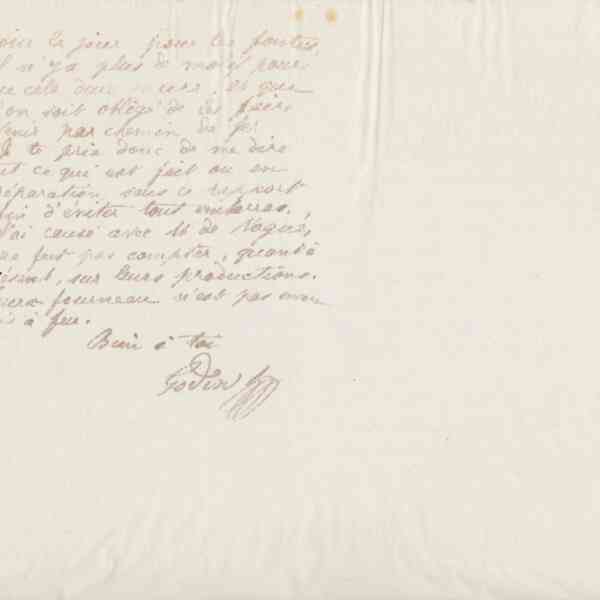 la jour pour les fontes,
il n'y a plus de moyen pour
que cela dans et que
l'on soit obligé de les faire
venir par chemin de fer
Je te prie donc de me dire
tout ce qui est fait ou en
préparation sous ce rapport
afin d'éviter tout embarras.
J'ai causé avec M de Vogue,
ne faut pas compter, quant à
présent, sur leurs productions.
leurs fourneau n'est pas encore
mis à feu.
Bien à toi
Godin